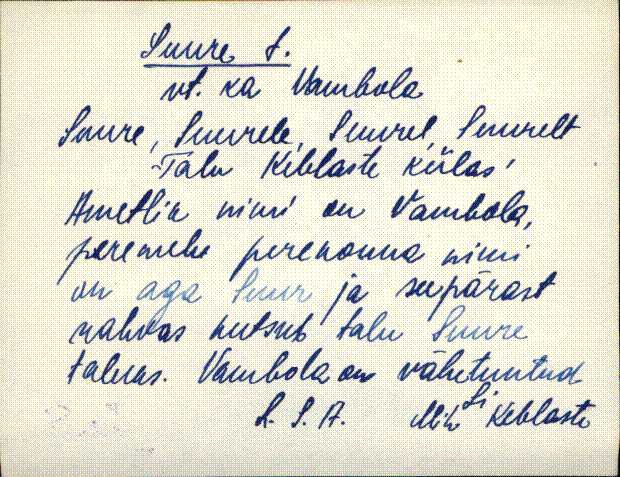 Suure t.
vt. ka Vambola
Suure, Suurele, Suurel, Suurelt
Talu Keblaste külas
Ametlik nimi on Vambola,
peremehe perekonna nimi
on aga Suur ja seepärast
rahvas kutsub talu Suure
taluks. Vambola on vähetuntud
L. S. A. Mih Li Keblaste